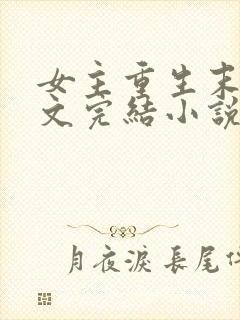 女主重生末
文完結小説
月夜淚長尾